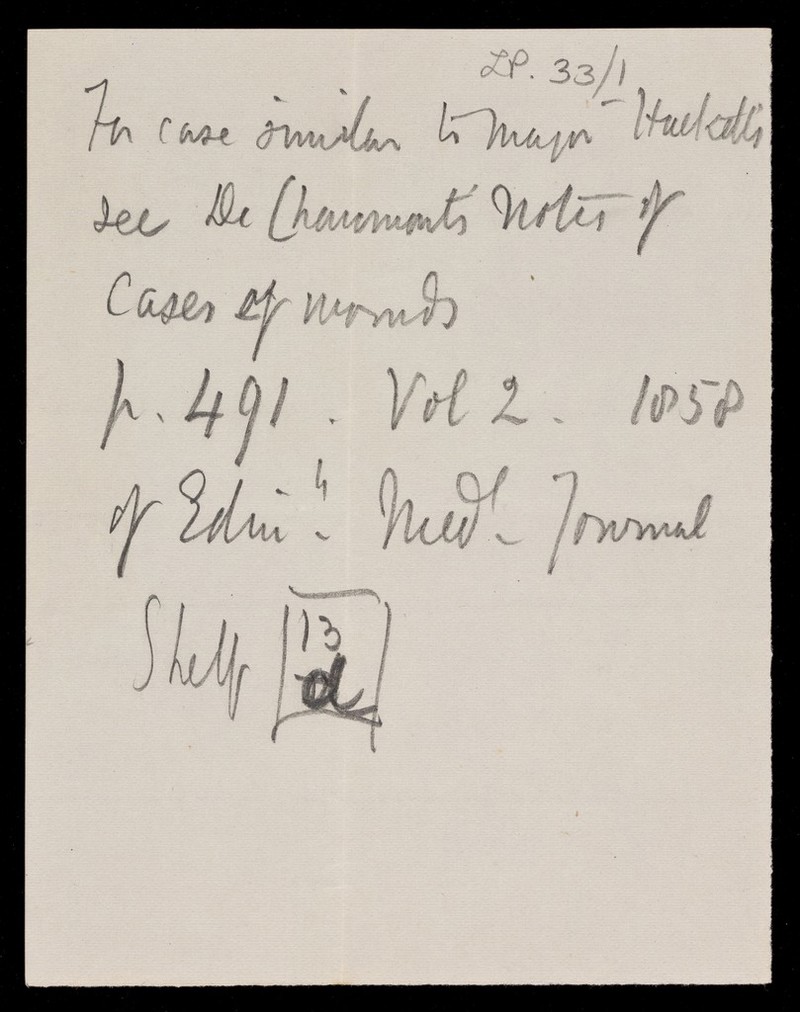 LP. 33/1
For case similar to Major Hackett's
see De Chaumont's Notes of
Cases of wounds
p. 491. Vol 2. 1858
of Edinh. Medl. Journal
Shelf 13
d